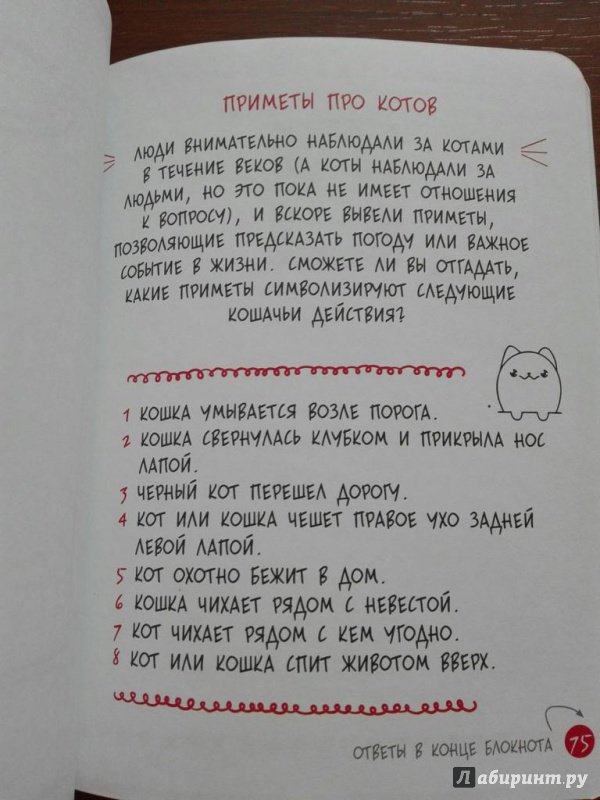 ПРИМЕТЫ ПРО КОТОВ
ЛЮДИ ВНИМАТЕЛЬНО НАБЛЮДАЛИ ЗА КОТАМИ
В ТЕЧЕНИЕ ВЕКОВ (А КОТЫ НАБЛЮДАЛИ ЗА
ЛЮДЬМИ, НО ЭТО ПОКА НЕ ИМЕЕТ ОТНОШЕНИЯ
К ВОПРОСУ), И ВСКОРЕ ВЫВЕЛИ ПРИМЕТЫ,
ПОЗВОЛЯЮЩИЕ ПРЕДСКАЗАТЬ ПОГОДУ ИЛИ ВАЖНОЕ
СОБЫТИЕ В ЖИЗНИ. СМОЖЕТЕ ЛИ ВЫ ОТГАДАТЬ,
КАКИЕ ПРИМЕТЫ СИМВОЛИЗИРУЮТ СЛЕДУЮЩИЕ
КОШАЧЬИ ДЕЙСТВИЯ?
1 КОШКА УМЫВАЕТСЯ ВОЗЛЕ ПОРОГА.
2 КОШКА СВЕРНУЛАСЬ КЛУБКОМ И ПРИКРЫЛА НОС
ЛАПОЙ.
3 ЧЕРНЫЙ КОТ ПЕРЕШЕЛ ДОРОГУ.
4 КОТ ИЛИ КОШКА ЧЕШЕТ ПРАВОЕ УХО ЗАДНЕЙ
ЛЕВОЙ ЛАПОЙ.
5 КОТ ОХОТНО БЕЖИТ В ДОМ.
6 КОШКА ЧИХАЕТ РЯДОМ С НЕВЕСТОЙ.
7 КОТ ЧИХАЕТ РЯДОМ С КЕМ УГОДНО.
8 КОТ ИЛИ КОШКА СПИТ ЖИВОТОМ ВВЕРХ.
ОТВЕТЫ В КОНЦЕ БЛОКНОТА 75
Лабиринт.ру